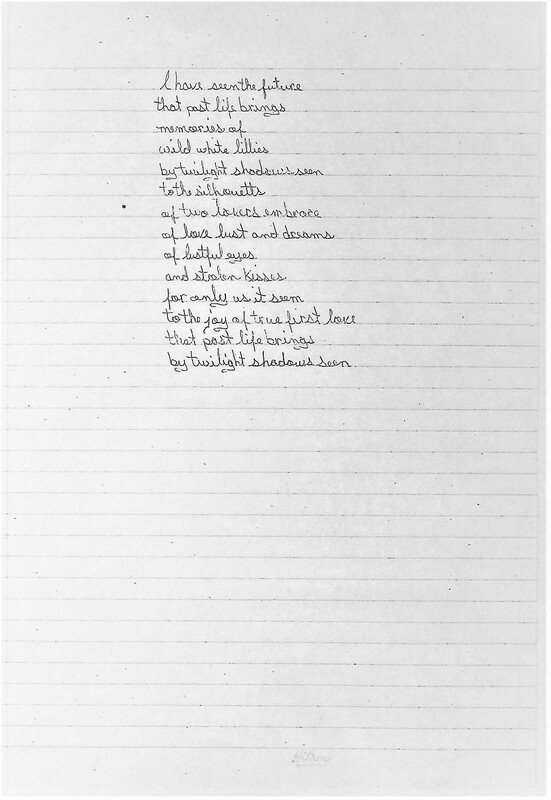 I have seen the future
that past life brings
memories of
wild white lillies
by twilight shadows seen
to the silhouetts
of two lovers embrace
of love lust and dreams
of lustful eyes
and stolen kisses
for only us it seem
to the joy of true first love
that past life brings
by twilight shadows seen